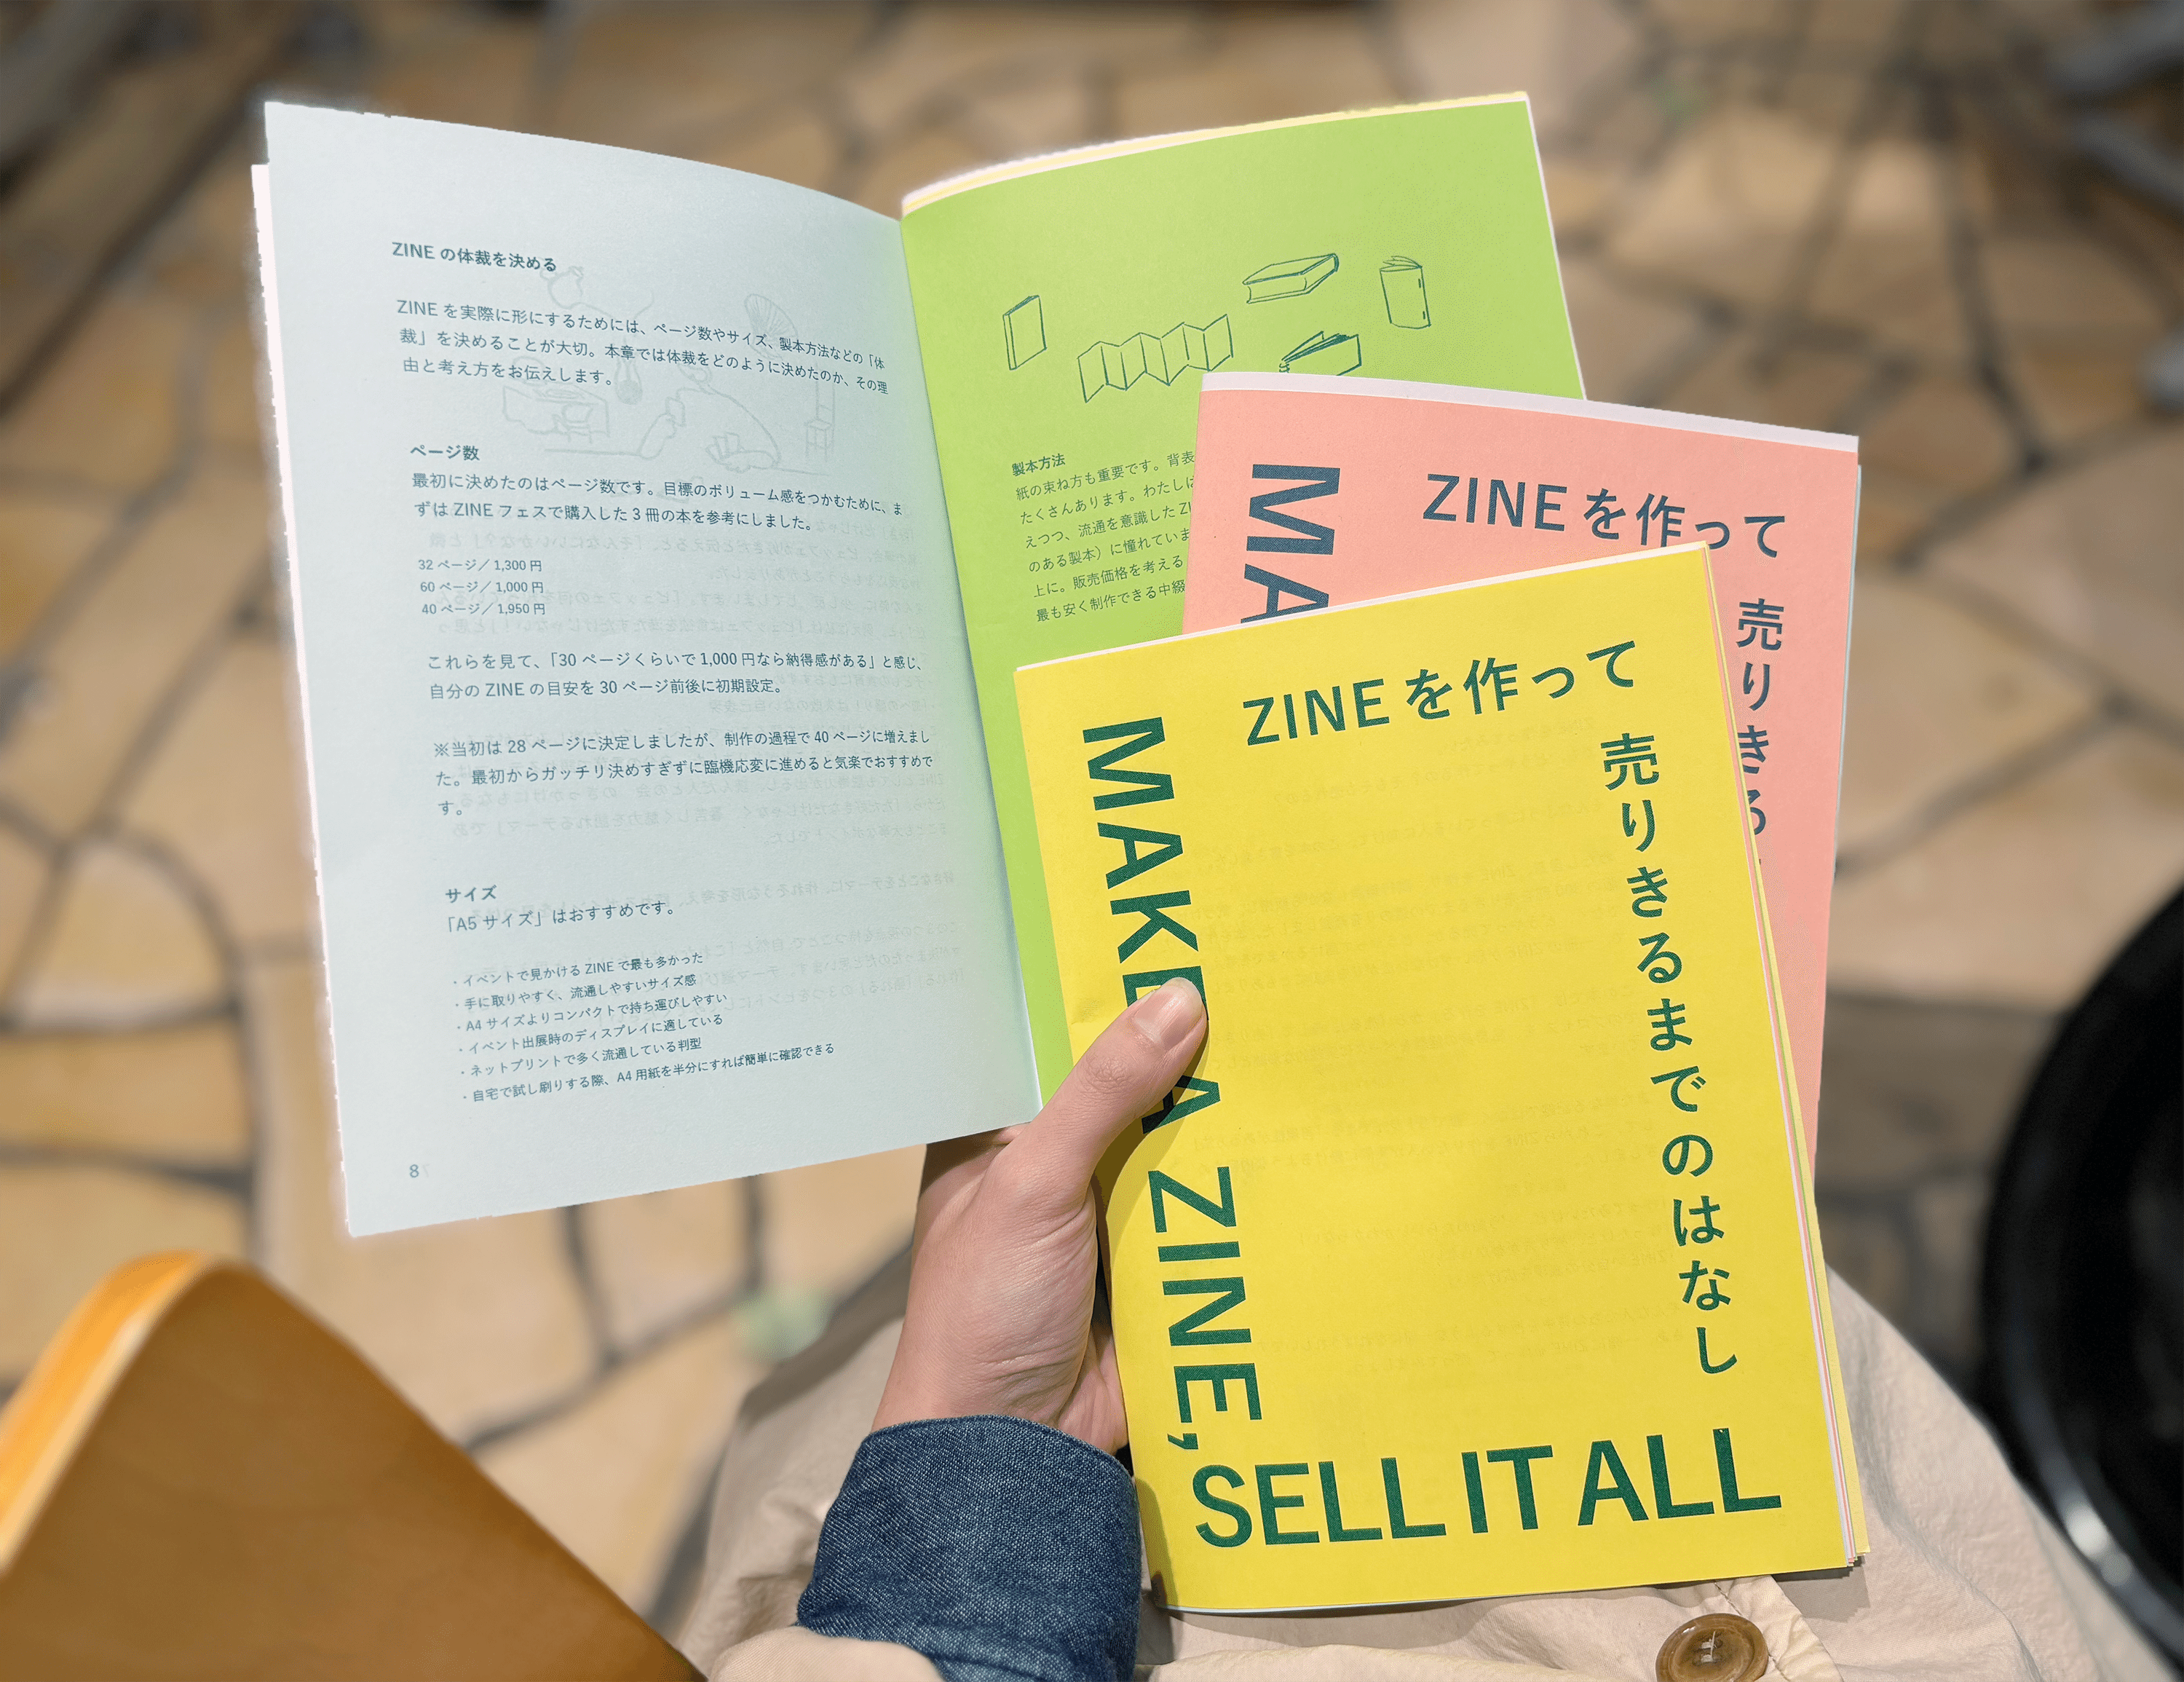 ZINE の体裁を決める
ZINE を実際に形にするためには、ページ数やサイズ、製本方法などの「体
裁」を決めることが大切。本章では体裁をどのように決めたのか、その理
由と考え方をお伝えします。
ページ数
最初に決めたのはページ数です。目標のボリューム感をつかむために、ま
ずは ZINE フェスで購入した 3 冊の本を参考にしました。
32 ページ／ 1,300 円
60 ページ／ 1,000 円
40 ページ／ 1,950 円
これらを見て、「30 ページくらいで 1,000 円なら納得感がある」と感じ、
自分の ZINE の目安を 30 ページ前後に初期設定。
※当初は 28 ページに決定しましたが、制作の過程で 40 ページに増えまし
た。最初からガッチリ決めすぎずに臨機応変に進めると気楽でおすすめで
す。
サイズ
「A5 サイズ」はおすすめです。
・イベントで見かける ZINE で最も多かった
・手に取りやすく、流通しやすいサイズ感
・A4 サイズよりコンパクトで持ち運びしやすい
・イベント出展時のディスプレイに適している
・ネットプリントで多く流通している判型
・自宅で試し刷りする際、A4 用紙を半分にすれば簡単に確認できる
8
製本方法
紙の束ね方も重要です。背表
たくさんあります。わたしは
えつつ、流通を意識した ZI
のある製本）に憧れていま
上に。販売価格を考える
最も安く制作できる中綴
MA
ZINE を作って
売りきる
ZINE を作って
売りきるまでのはなし
MAKE A ZINE,
SELL IT ALL